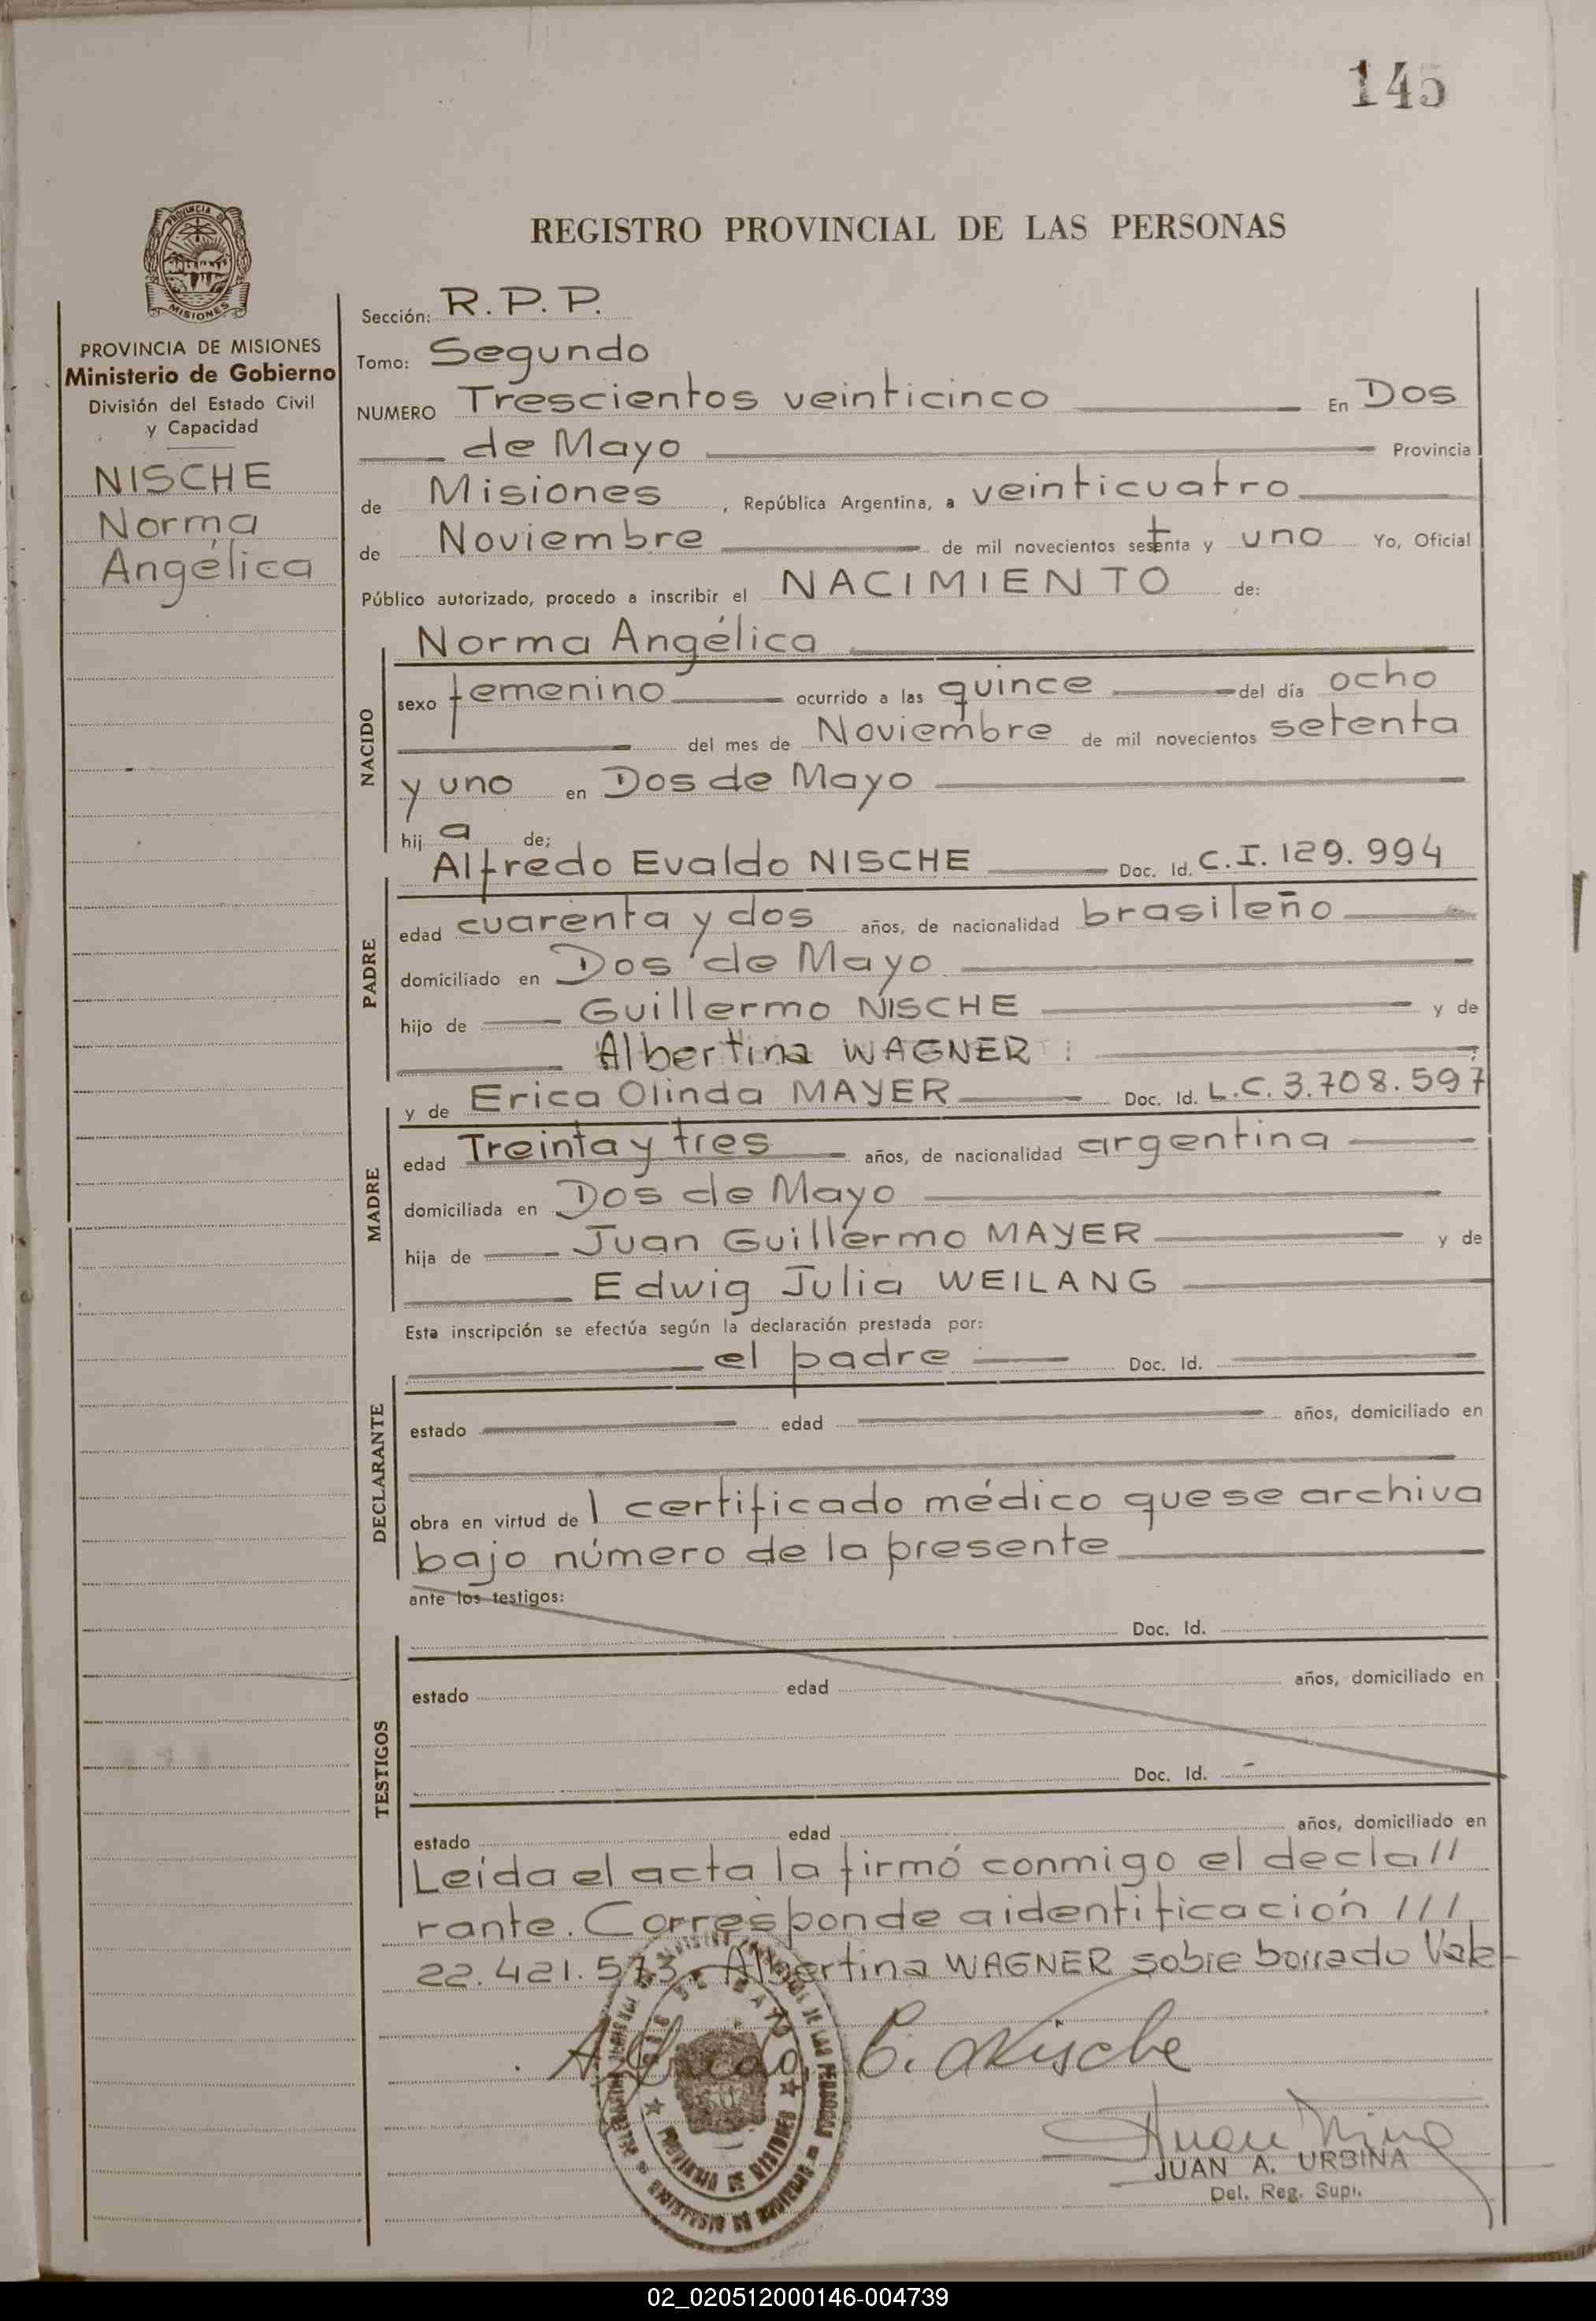 145
PROVINCIA DE
MISIONES
REGISTRO PROVINCIAL DE LAS PERSONAS
PROVINCIA DE MISIONES
Ministerio de Gobierno
División del Estado Civil
y Capacidad
NISCHE
Norma
Angélica
Sección: R.P.P.
Tomo: Segundo
NUMERO Trescientos veinticinco En Dos
de Mayo Provincia
de Misiones, República Argentina, a veinticuatro
de Noviembre de mil novecientos setenta y uno Yo, Oficial
Público autorizado, procedo a inscribir el NACIMIENTO de:
NACIDO
Norma Angélica
sexo femenino ocurrido a las quince del día ocho
del mes de Noviembre de mil novecientos setenta
y uno en Dos de Mayo
hija de;
PADRE
Alfredo Evaldo NISCHE Doc. Id. C.I. 129.994
edad cuarenta y dos años, de nacionalidad brasileño
domiciliado en Dos de Mayo
hijo de Guillermo NISCHE y de
Albertina WAGNER
MADRE
y de Erica Olinda MAYER Doc. Id. L.C. 3.708.597
edad Treinta y tres años, de nacionalidad argentina
domiciliada en Dos de Mayo
hija de Juan Guillermo MAYER y de
Edwig Julia WEILANG
Esta inscripción se efectúa según la declaración prestada por:
DECLARANTE
el padre Doc. Id.
estado edad años, domiciliado en
obra en virtud de l certificado médico que se archiva
bajo número de la presente
ante los testigos:
TESTIGOS
Doc. Id.
estado edad años, domiciliado en
Doc. Id.
estado edad años, domiciliado en
Leída el acta la firmó conmigo el decla//
rante. Corresponde a identificación ///
22.421.573. Albertina WAGNER sobre borrado Vale
Alfredo E. Nische
PROVINCIA DE MISIONES
JUAN A. URBINA
Del. Reg. Supl.
02_020512000146-004739